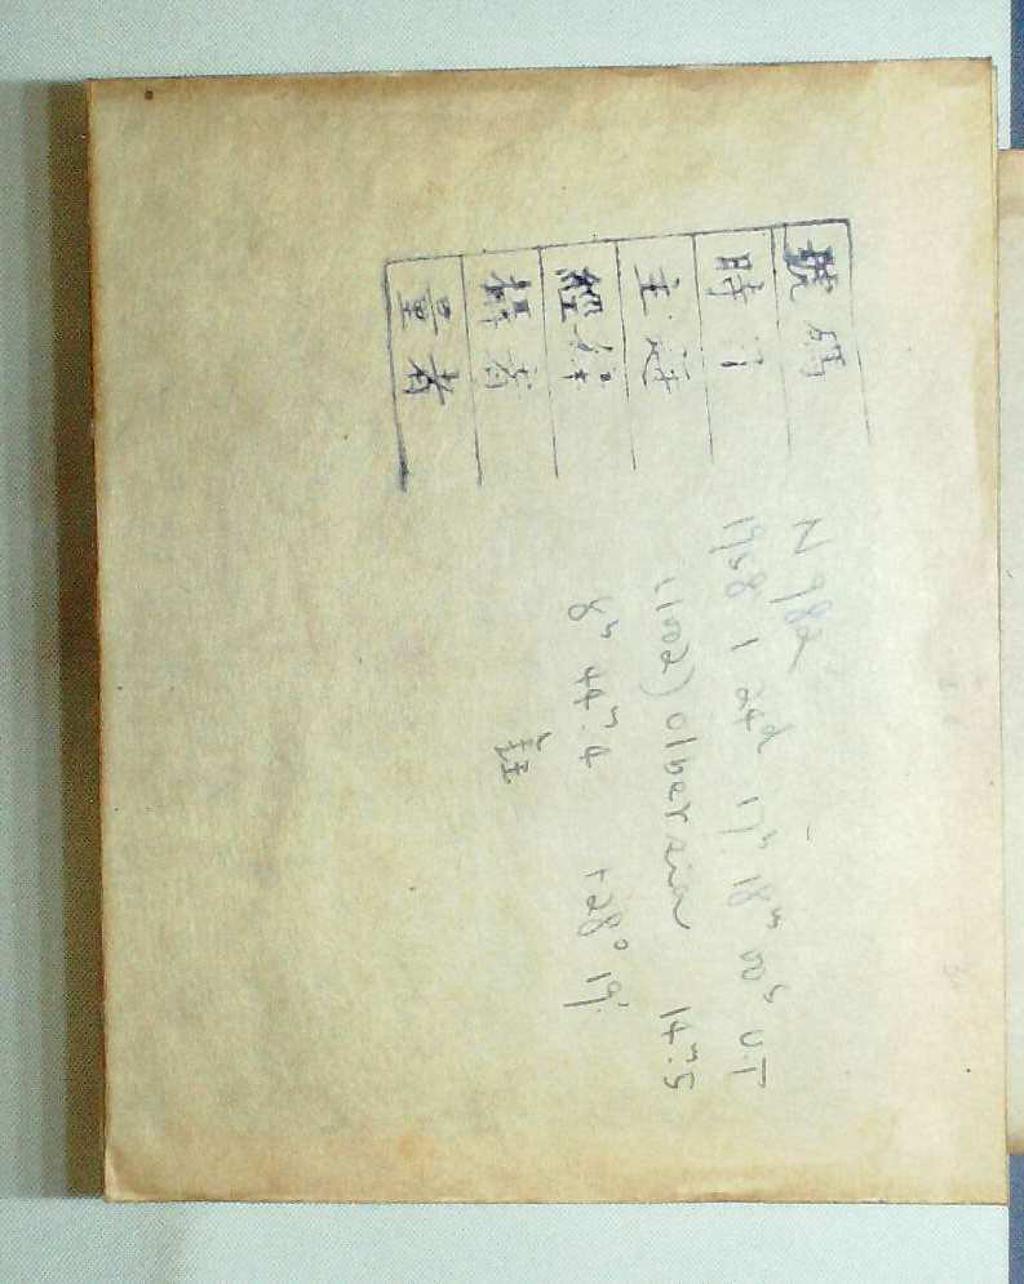 號碼 N 982
時 1958 1 24d 17h 18m 00s U.T
主 (1002) Olbersia 14m.5
經緯 8h 44m.4 +28° 19'
攝者
量者